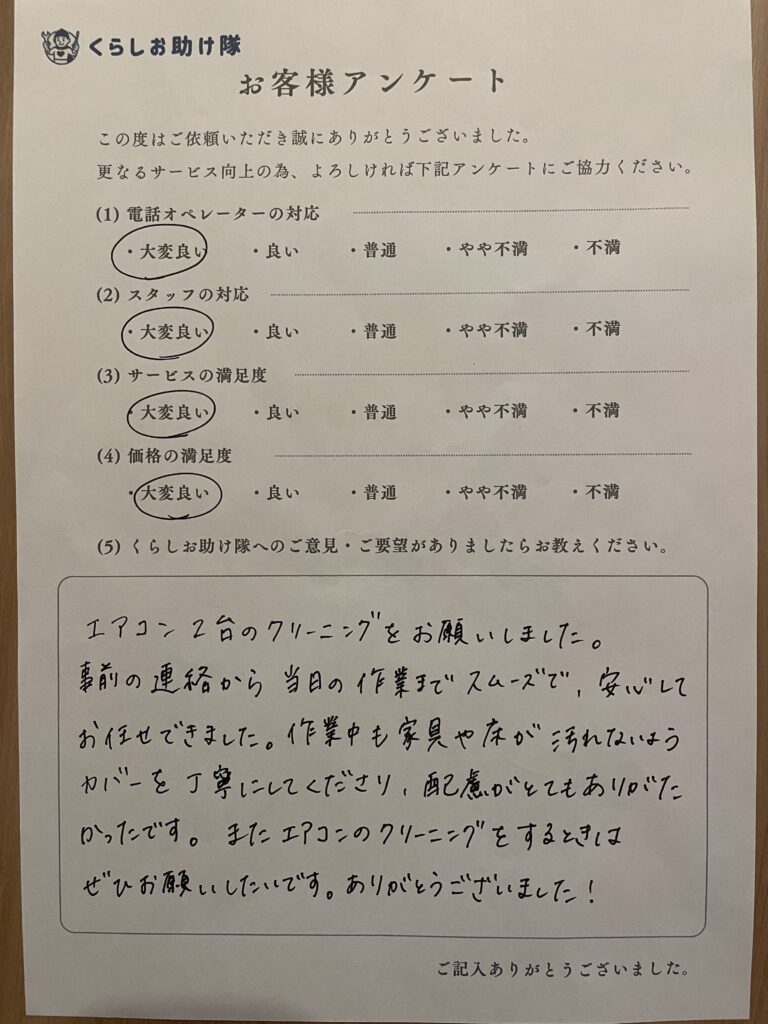 くらしお助け隊
お客様アンケート
この度はご依頼いただき誠にありがとうございました。
更なるサービス向上の為、よろしければ下記アンケートにご協力ください。
(1) 電話オペレーターの対応
・大変良い ・良い ・普通 ・やや不満 ・不満
(2) スタッフの対応
・大変良い ・良い ・普通 ・やや不満 ・不満
(3) サービスの満足度
・大変良い ・良い ・普通 ・やや不満 ・不満
(4) 価格の満足度
・大変良い ・良い ・普通 ・やや不満 ・不満
(5) くらしお助け隊へのご意見・ご要望がありましたらお教えください。
エアコン2台のクリーニングをお願いしました。
事前の連絡から当日の作業までスムーズで、安心して
お任せできました。作業中も家具や床が汚れないよう
カバーを丁寧にしてくださり、配慮がとてもありがた
かったです。またエアコンのクリーニングをするときは
ぜひお願いしたいです。ありがとうございました！
ご記入ありがとうございました。